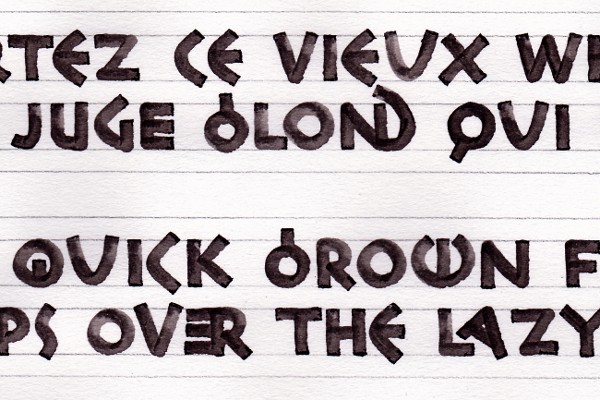 RTEZ CE VIEUX WH
JUGE BLOND QUI
QUICK BROWN F
PS OVER THE LAZY